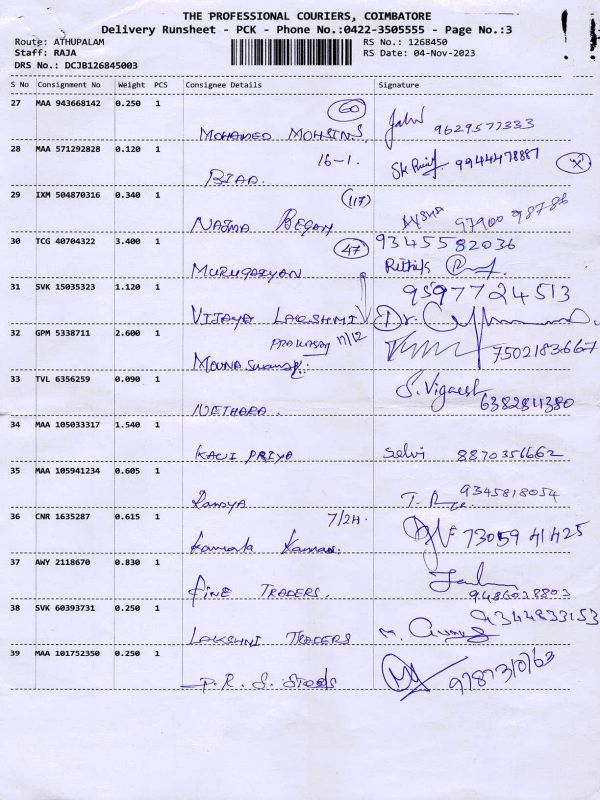 THE PROFESSIONAL COURIERS, COIMBATORE
Delivery Runsheet - PCK - Phone No.:0422-3505555 - Page No.:3
Route: ATHUPALAM RS No.: 1268450
Staff: RAJA RS Date: 04-Nov-2023
DRS No.: DCJB126845003
S No Consignment No Weight PCS Consignee Details Signature
27 MAA 943668142 0.250 1 60
MOHAMED MOHSIN S 9629577333
28 MAA 571292828 0.120 1 16-1. 9944478887
29 IXM 504870316 0.340 1 (117)
NAJMA BEGAM AYSHA 97900 98786
30 TCG 40704322 3.400 1 47 9345582036
MURUGAIYAN Rithik
31 SVK 15035323 1.120 1 9597724513
VIJAYA LAKSHMI Dr.
32 GPM 5338711 2.600 1 11/12
MOUNA 7502183667
33 TVL 6356259 0.090 1 S. Vignesh
NETHARA.. 6382811380
34 MAA 105033317 1.540 1
KAVI PRIYA Selvi 8870356662
35 MAA 105941234 0.605 1
Ramya 9345818054
36 CNR 1635287 0.615 1 7/24.
Kamala Kannan. 73059 41425
37 AWY 2118670 0.830 1
FINE TRADERS. 9486028803
38 SVK 60393731 0.250 1 9344833153
LAKSHMI TRADERS M.
39 MAA 101752350 0.250 1
P. R. S. STORES 9787310163